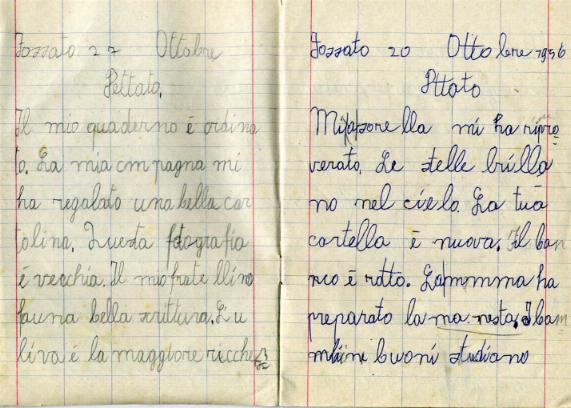 Fossato 27 Ottobre
Dettato.
Il mio quaderno è ordina
to. La mia cmpagna mi
ha regalato una bella car
tolina. Questa fotografia
è vecchia. Il mio frate llino
fa una bella scrittura. L'u
liva è la maggiore ricche
Fossato 20 Ottobre 1956
Dttato
Mia sorella mi ha ripro
verato. Le stelle brilla
no nel cielo. La tua
cartella è nuova. Il ban
nco è rotto. La mmma ha
preparato la ma nesta. I bam
mbini buoni studiano